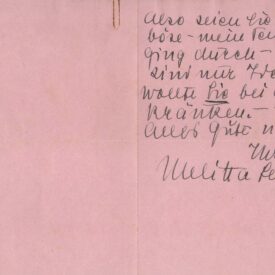 Also seien Sie
böse - mein
ging durch -
sind nur
wollte Sie bei
kränken. -
Alles Gute
Melitta